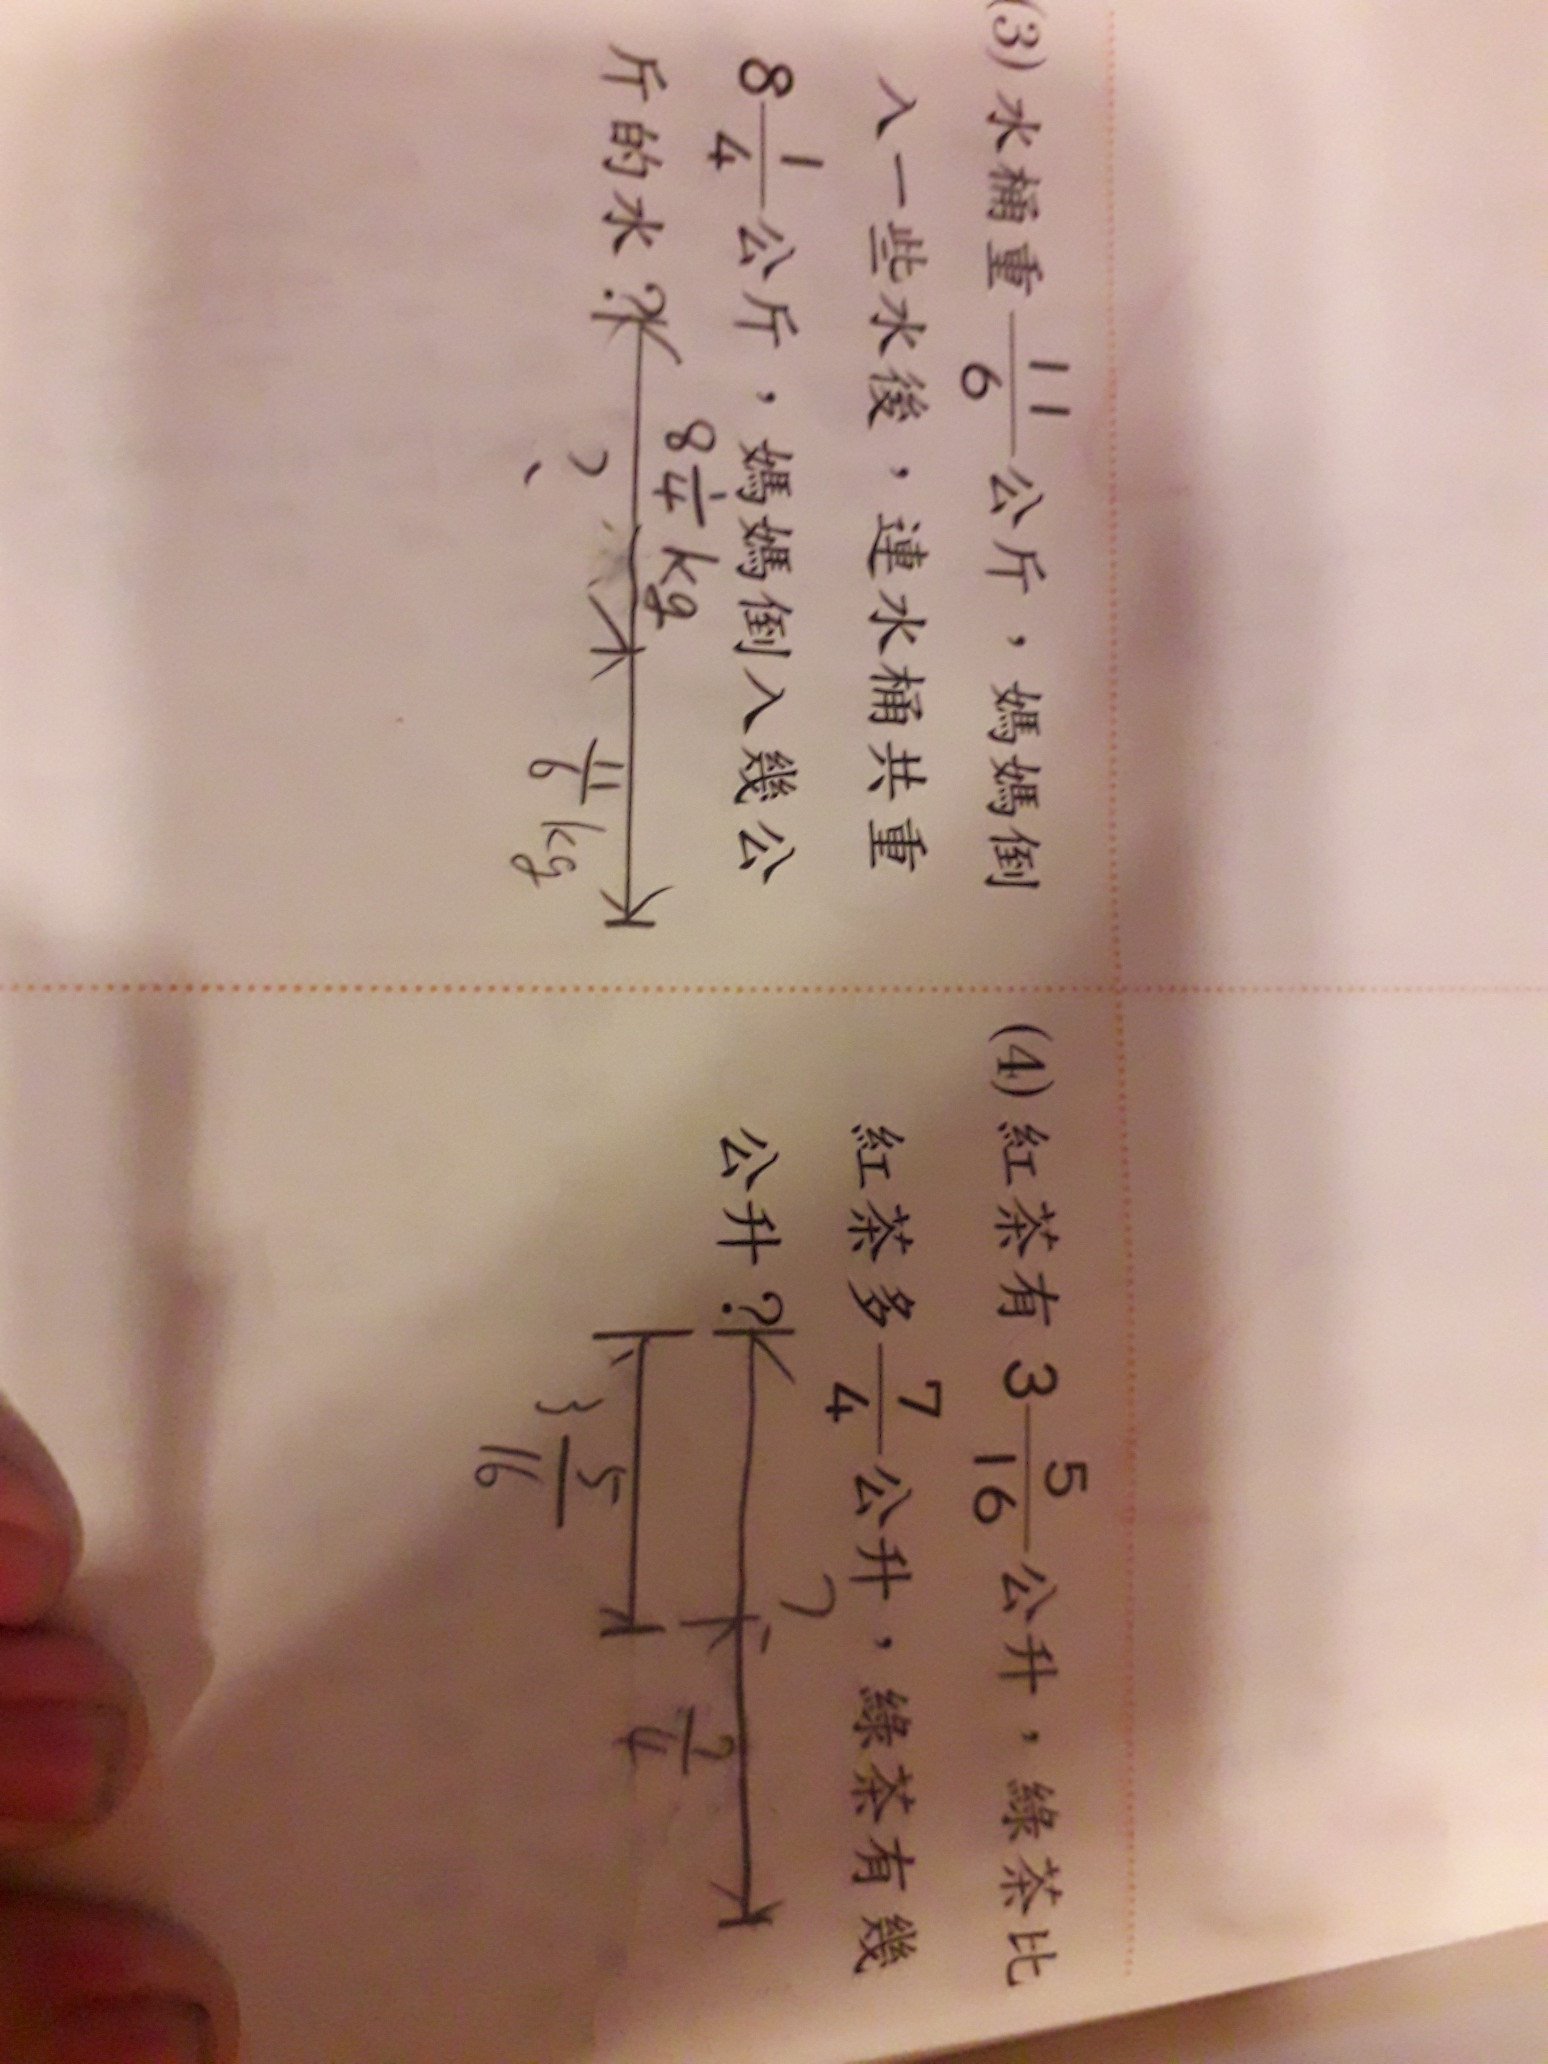 (3) 水桶重 11/6 公斤，媽媽倒
入一些水後，連水桶共重
8 1/4 公斤，媽媽倒入幾公
斤的水？
8 1/4 kg
?
11/6 kg
(4) 紅茶有 3 5/16 公升，綠茶比
紅茶多 7/4 公升，綠茶有幾
公升？
?
7/4
3 5/16